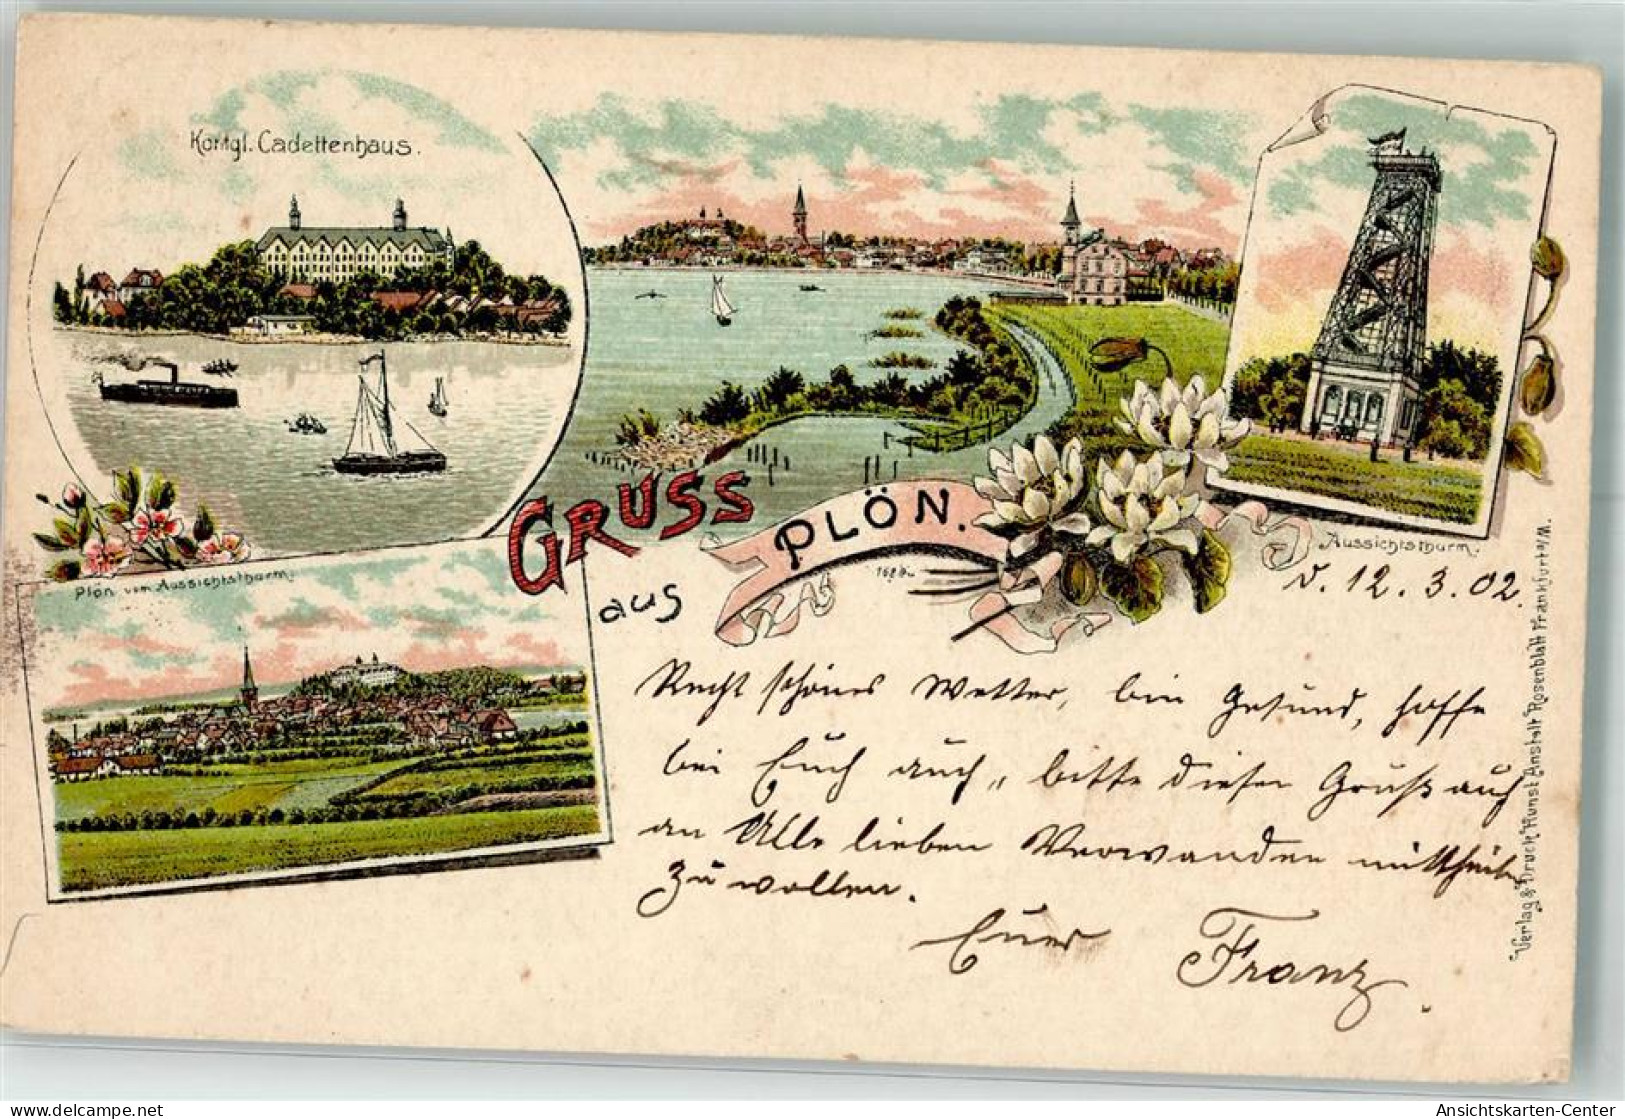 Königl. Cadettenhaus.
GRUSS
aus
PLÖN.
1686
Aussichtsthurm.
Plön vom Aussichtsthurm.
d. 12. 3. 02.
Recht schönes Wetter, bin Gesund, hoffe
bei Euch auch, bitte diesen Gruß auch
an Alle lieben Verwanden mittheilen
zu wollen.
Euer Franz.
Verlag & Druck Kunst Anstalt Rosenblatt Frankfurt a/M.
www.delcampe.net
Ansichtskarten-Center